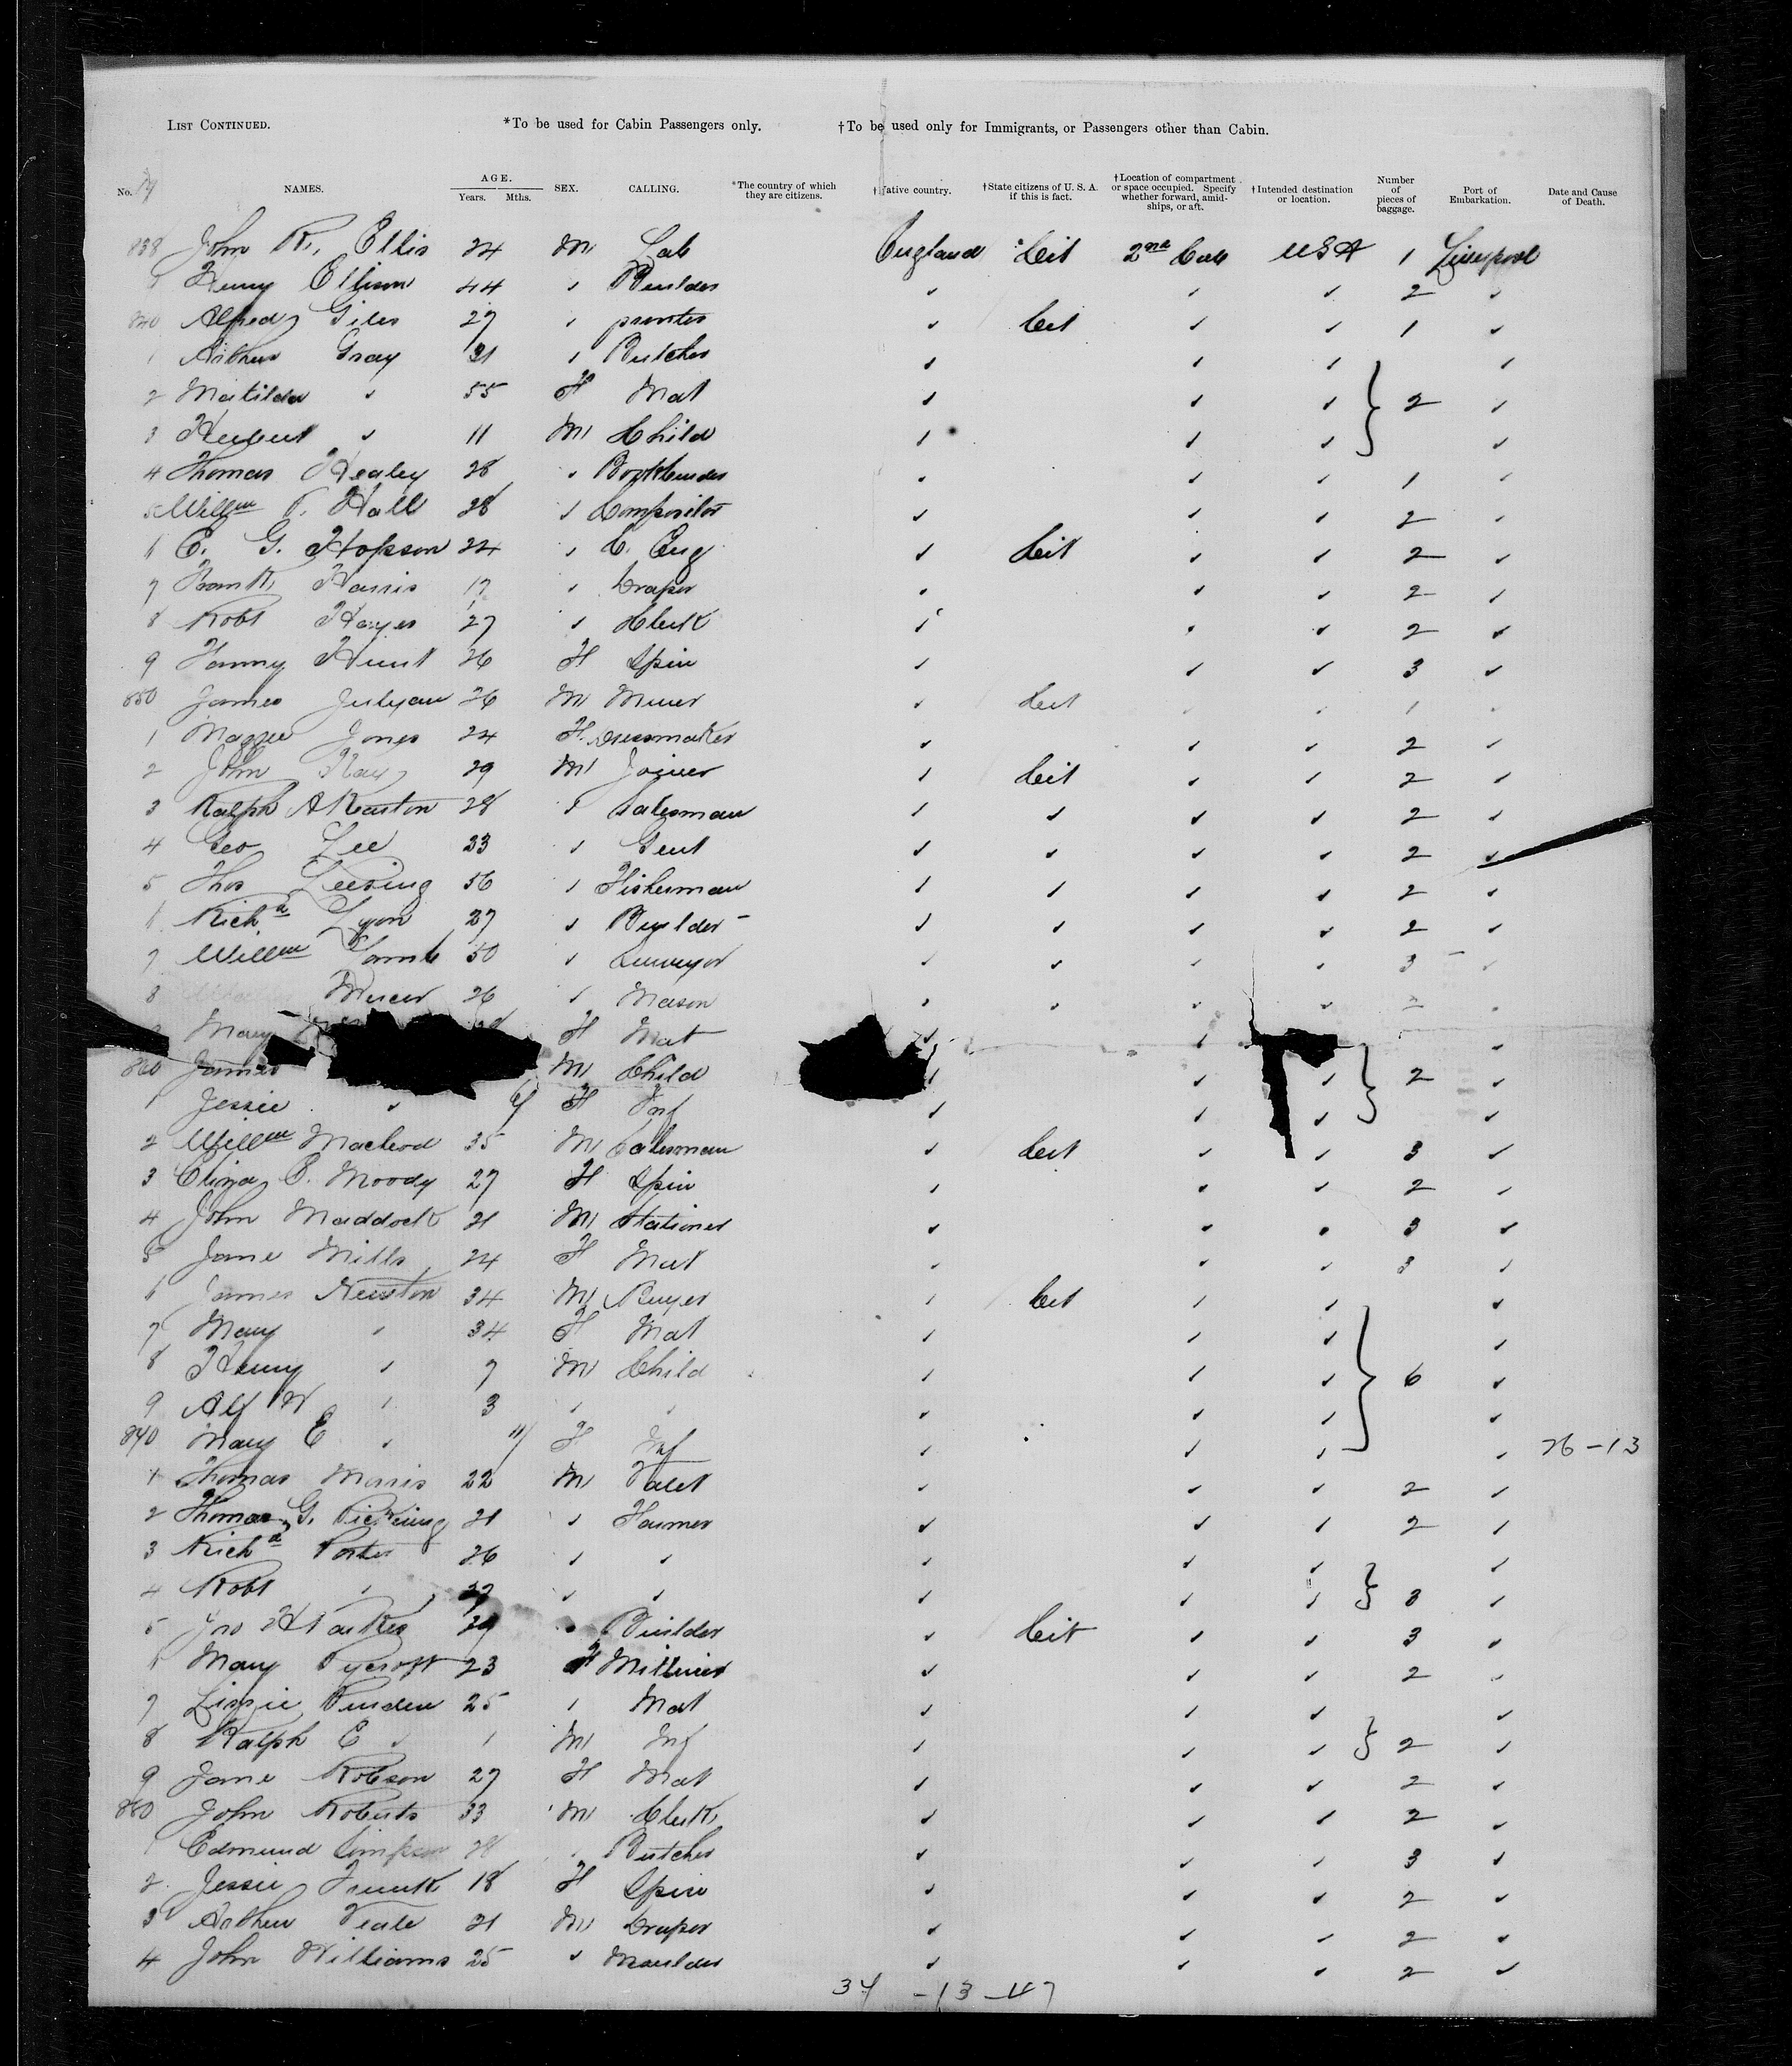 LIST CONTINUED. *To be used for Cabin Passengers only. †To be used only for Immigrants, or Passengers other than Cabin.
No. NAMES. AGE. Years. Mths. SEX. CALLING. *The country of which they are citizens. †Native country. †State citizens of U. S. A. if this is fact. †Location of compartment or space occupied. Specify whether forward, amidships, or aft. †Intended destination or location. Number of pieces of baggage. Port of Embarkation. Date and Cause of Death.
838 John R. Ellis 24 M Lab England Cit 2nd Cab USA 1 Liverpool
9 Henry Ellison 44 ✓ Builder ✓ ✓ ✓ 2 ✓
840 Alfred Giles 27 ✓ printer ✓ Cit ✓ ✓ 1 ✓
1 Arthur Gray 31 ✓ Butcher ✓ ✓ ✓ ✓
2 Matilda ✓ 55 F Mat ✓ ✓ ✓ 2 ✓
3 Herbert ✓ 11 M Child ✓ ✓ ✓ ✓
4 Thomas Healey 28 ✓ Bookbinder ✓ ✓ ✓ 1 ✓
5 Willm T. Hall 28 ✓ Compositor ✓ ✓ ✓ 2 ✓
6 E. G. Hopson 24 ✓ C. Eng ✓ Cit ✓ ✓ 2 ✓
7 Frank Harris 17 ✓ Draper ✓ ✓ ✓ 2 ✓
8 Robt Hayes 27 ✓ Clerk ✓ ✓ ✓ 2 ✓
9 Fanny Hunt 26 F Spin ✓ ✓ ✓ 3 ✓
850 James Julyan 26 M Miner ✓ Cit ✓ ✓ 1 ✓
1 Maggie Jones 24 F Dressmaker ✓ ✓ ✓ 2 ✓
2 John Kay 29 M Joiner ✓ Cit ✓ ✓ 2 ✓
3 Ralph A Keaston 28 ✓ Salesman ✓ ✓ ✓ ✓ 2 ✓
4 Geo Lee 33 ✓ Gent ✓ ✓ ✓ ✓ 2 ✓
5 Thos Leesing 56 ✓ Fisherman ✓ ✓ ✓ ✓ 2 ✓
6 Richd Lyon 27 ✓ Builder ✓ ✓ ✓ ✓ 2 ✓
7 Willm Lamb 50 ✓ Surveyor ✓ ✓ ✓ ✓ 3 ✓
8 Mercer 26 ✓ Mason ✓ ✓ ✓ ✓ 2 ✓
9 Mary F Mat ✓ ✓ ✓
860 James M Child ✓ ✓ ✓ 2 ✓
1 Jessie ✓ F Inf ✓ ✓ ✓ ✓
2 Willm Macleod 35 M Salesman ✓ Cit ✓ ✓ 3 ✓
3 Eliza E. Moody 27 F Spin ✓ ✓ ✓ 2 ✓
4 John Maddock 21 M Stationer ✓ ✓ ✓ 3 ✓
5 Jane Mills 24 F Mat ✓ ✓ ✓ 3 ✓
6 James Newton 34 M Buyer ✓ Cit ✓ ✓ ✓
7 Mary ✓ 34 F Mat ✓ ✓ ✓ ✓
8 Henry ✓ 7 M Child ✓ ✓ ✓ 6 ✓
9 Alf W ✓ 3 ✓ ✓ ✓ ✓ ✓ ✓
870 Mary E ✓ 11/ F Inf ✓ ✓ ✓ ✓ 26-13
1 Thomas Morris 22 M Valet ✓ ✓ ✓ 2 ✓
2 Thomas G. Pickering 21 ✓ Farmer ✓ ✓ ✓ 2 ✓
3 Richd Porter 26 ✓ ✓ ✓ ✓ ✓ ✓
4 Robt ✓ ✓ ✓ ✓ ✓ ✓ 3 ✓
5 Jno H Parkes 29 ✓ Builder ✓ Cit ✓ ✓ 3 ✓
6 Mary Pycroft 23 F Milliner ✓ ✓ ✓ 2 ✓
7 Lizzie Purden 25 ✓ Mat ✓ ✓ ✓ ✓
8 Ralph E ✓ 1 M Inf ✓ ✓ ✓ 2 ✓
9 Jane Robson 27 F Mat ✓ ✓ ✓ 2 ✓
880 John Roberts 33 M Clerk ✓ ✓ ✓ 2 ✓
1 Edmund Simpson 28 ✓ Butcher ✓ ✓ ✓ 3 ✓
2 Jessie Trunk 18 F Spin ✓ ✓ ✓ 2 ✓
3 Arthur Veale 21 M Draper ✓ ✓ ✓ 2 ✓
4 John Williams 25 ✓ Moulder ✓ ✓ ✓ 2 ✓
34 -13-47